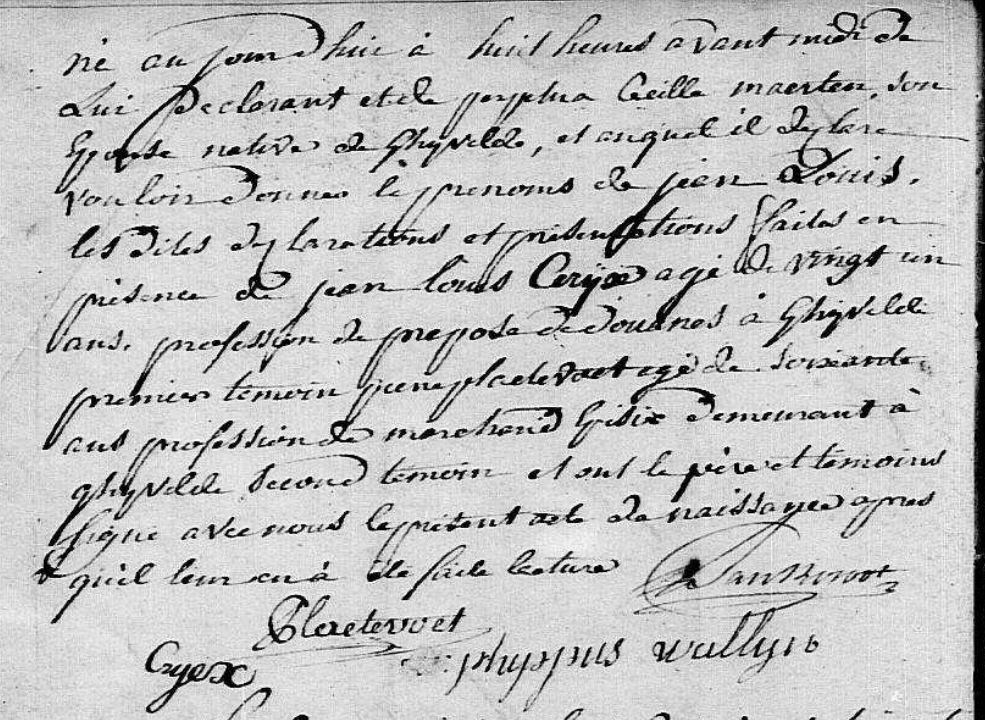 né au jourd'hui à huit heures avant midi de
Lui Declarant et de perpetua Cecille maerten, son
Epouse native de Ghyvelde, et auquel il declare
vouloir donner le prenoms de jean Louis.
les dites declarations et présentations faites en
présence de jean louis Ceryex agé de vingt un
ans, profession de preposé de douanes à Ghyvelde
premier temoin pierre plaetevoet agé de soixante
ans profession de marchand Episix demeurant à
ghyvelde second temoin et ont le père et temoins
signé avec nous le présent acte de naissance apres
qu'il leur en à été faite lecture
Plaetevoet
Cryex phyppus wallyn